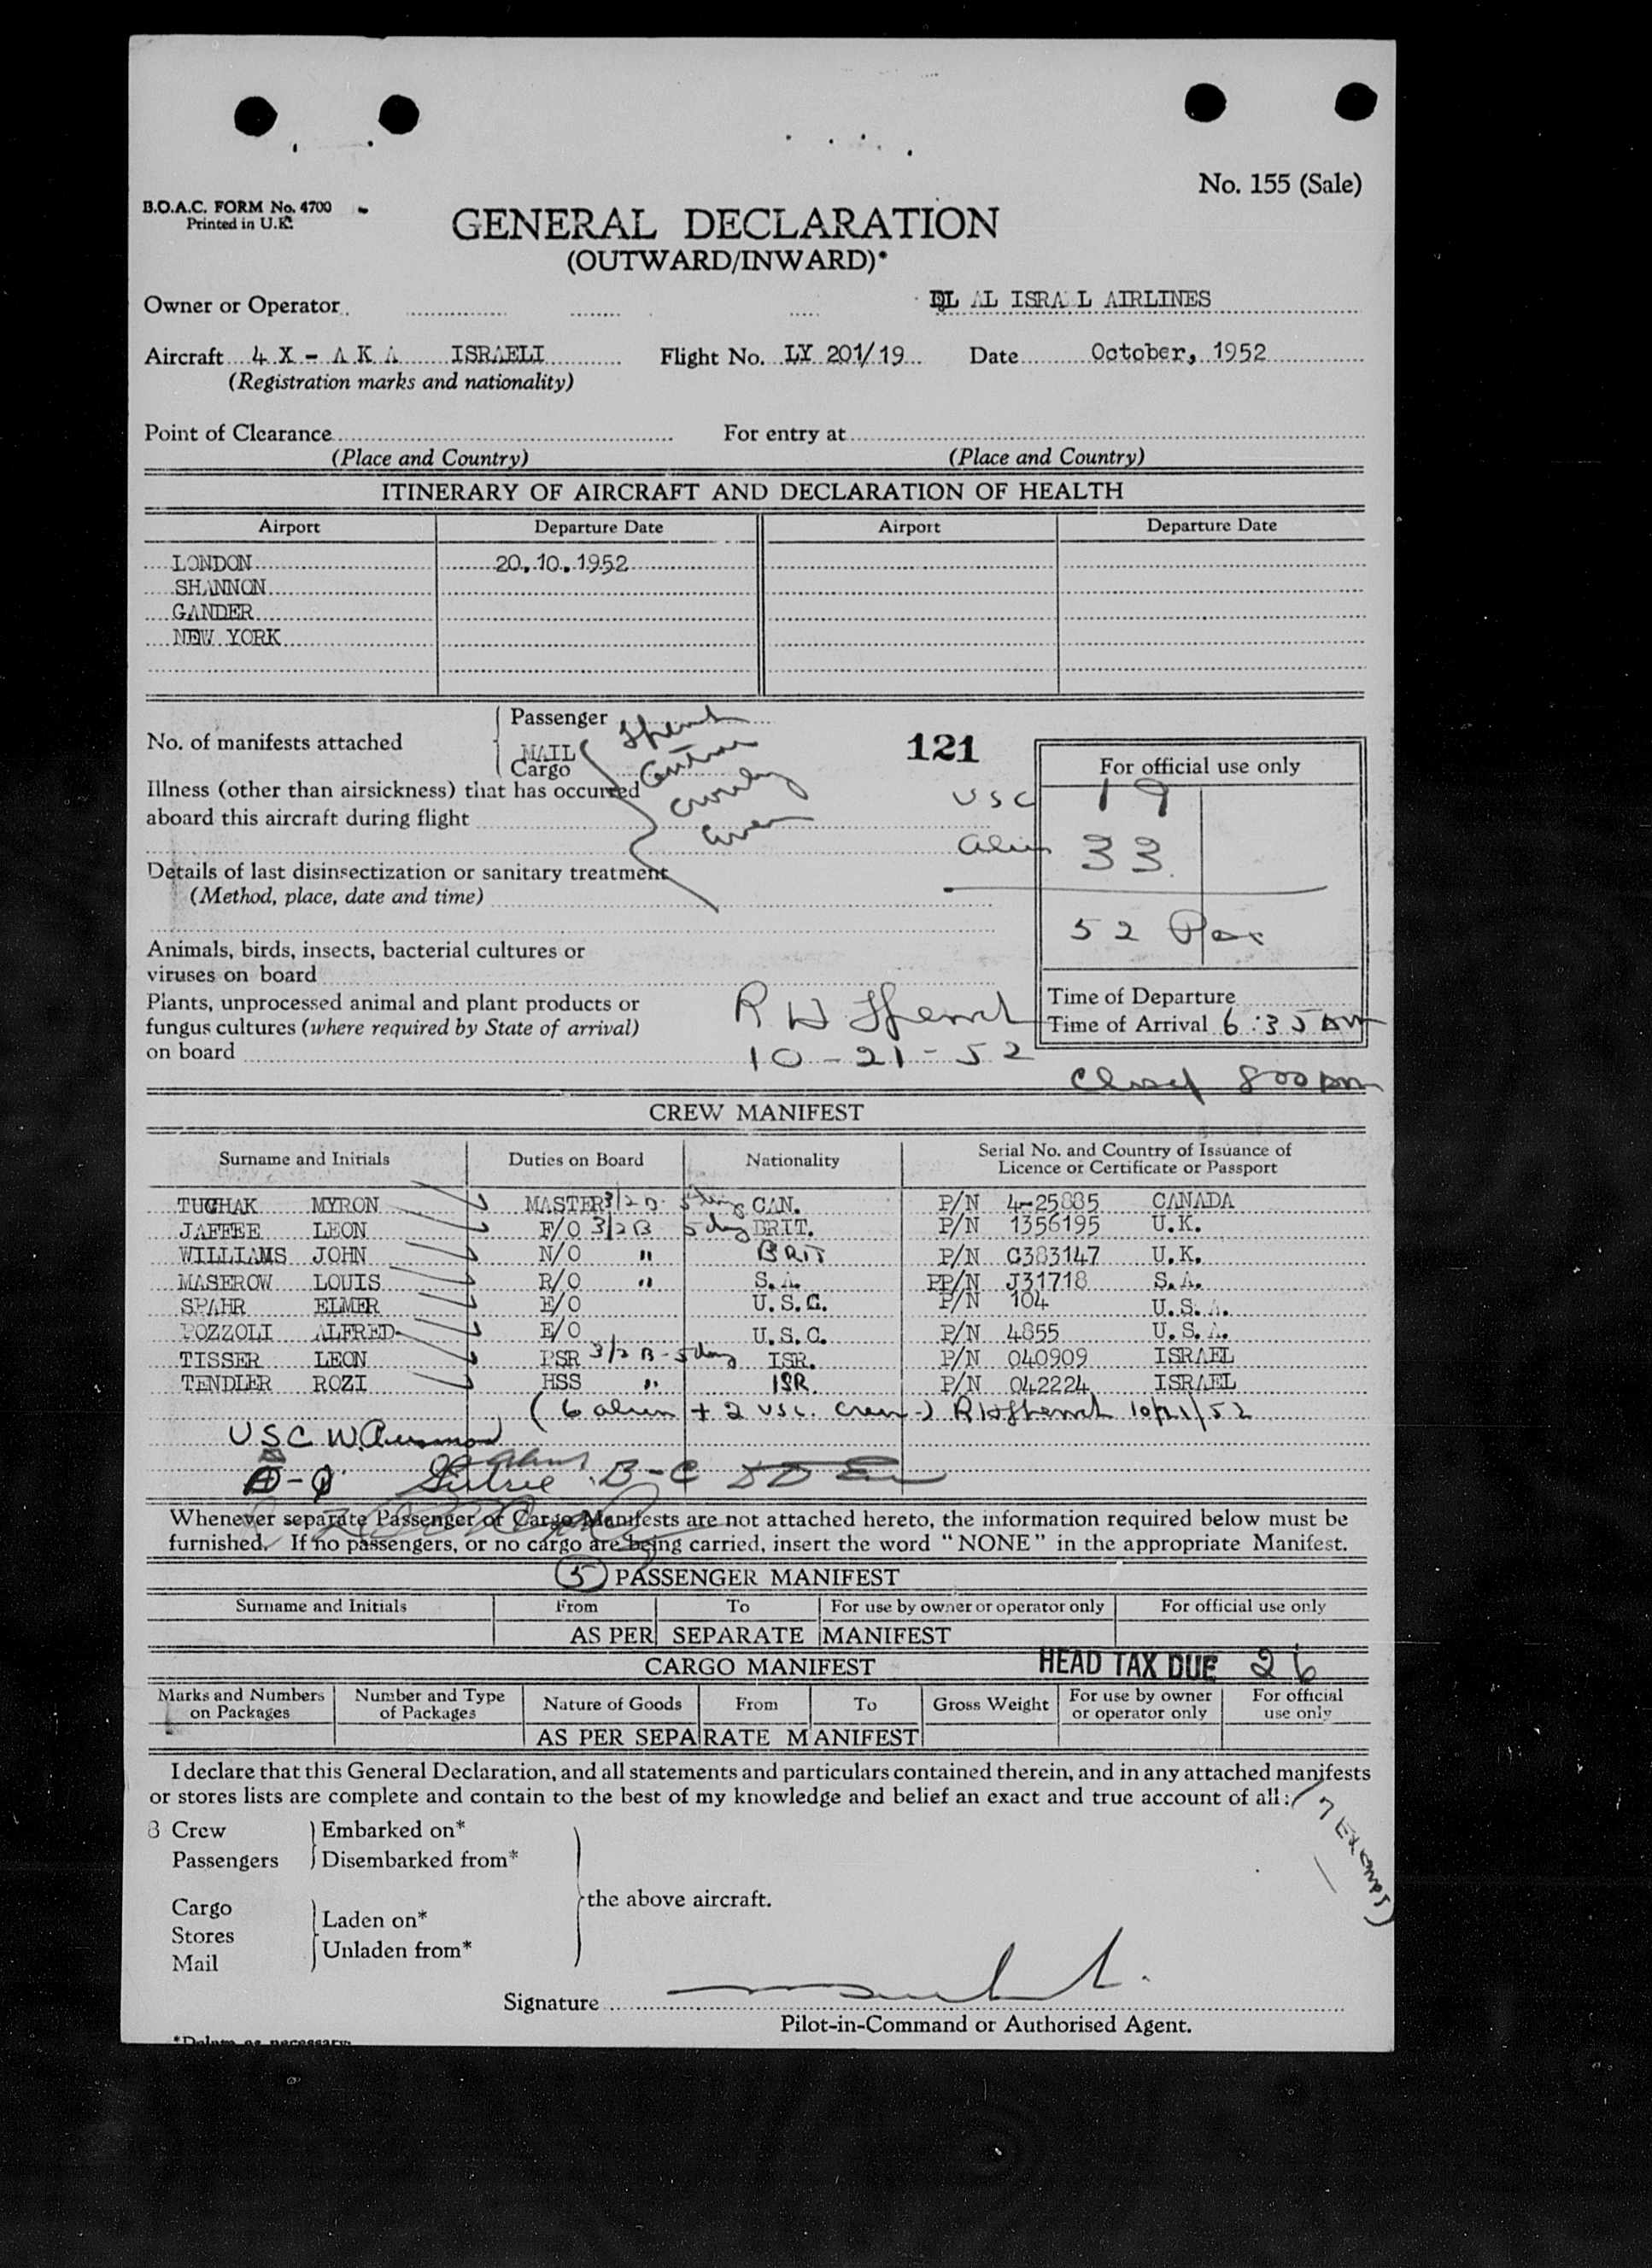 No. 155 (Sale)
B.O.A.C. FORM No. 4700
Printed in U.K.
GENERAL DECLARATION
(OUTWARD/INWARD)*
Owner or Operator AL ISRA L AIRLINES
Aircraft 4 X - A K A ISRAELI Flight No. LY 201/19 Date October, 1952
(Registration marks and nationality)
Point of Clearance For entry at
(Place and Country) (Place and Country)
ITINERARY OF AIRCRAFT AND DECLARATION OF HEALTH
Airport Departure Date Airport Departure Date
LONDON 20.10.1952
SHANNON
GANDER
NEW YORK
Passenger
No. of manifests attached
MAIL
Cargo
121
For official use only
Illness (other than airsickness) that has occurred
aboard this aircraft during flight
USC 19
alien 33
Details of last disinsectization or sanitary treatment
(Method, place, date and time)
52 Pax
Animals, birds, insects, bacterial cultures or
viruses on board
Plants, unprocessed animal and plant products or
fungus cultures (where required by State of arrival)
on board
R H
10-21-52
Time of Departure
Time of Arrival 6:35 AM
800 pm
CREW MANIFEST
Surname and Initials Duties on Board Nationality Serial No. and Country of Issuance of
Licence or Certificate or Passport
TUCHAK MYRON MASTER 3/2 B CAN. P/N 4-25885 CANADA
JAFFEE LEON F/O 3/2 B 5 day BRIT. P/N 1356195 U.K.
WILLIAMS JOHN N/O " BRIT P/N C383147 U.K.
MASEROW LOUIS R/O " S.A. PP/N J31718 S.A.
SPAHR ELMER E/O U.S.C. P/N 104 U.S.A.
POZZOLI ALFRED E/O U.S.C. P/N 4855 U.S.A.
TISSER LEON PSR 3/2 B - 5 day ISR. P/N 040909 ISRAEL
TENDLER ROZI HSS " ISR. P/N 042224 ISRAEL
(6 alien + 2 USC. crew) 10/21/52
USC
B-C
Whenever separate Passenger or Cargo Manifests are not attached hereto, the information required below must be
furnished. If no passengers, or no cargo are being carried, insert the word "NONE" in the appropriate Manifest.
5 PASSENGER MANIFEST
Surname and Initials From To For use by owner or operator only For official use only
AS PER SEPARATE MANIFEST
CARGO MANIFEST HEAD TAX DUE 26
Marks and Numbers on Packages Number and Type of Packages Nature of Goods From To Gross Weight For use by owner or operator only For official use only
AS PER SEPARATE MANIFEST
I declare that this General Declaration, and all statements and particulars contained therein, and in any attached manifests
or stores lists are complete and contain to the best of my knowledge and belief an exact and true account of all:
(7 Exempts)
8 Crew Embarked on*
Passengers Disembarked from*
the above aircraft.
Cargo
Laden on*
Stores
Unladen from*
Mail
Signature
Pilot-in-Command or Authorised Agent.
*Delete as necessary